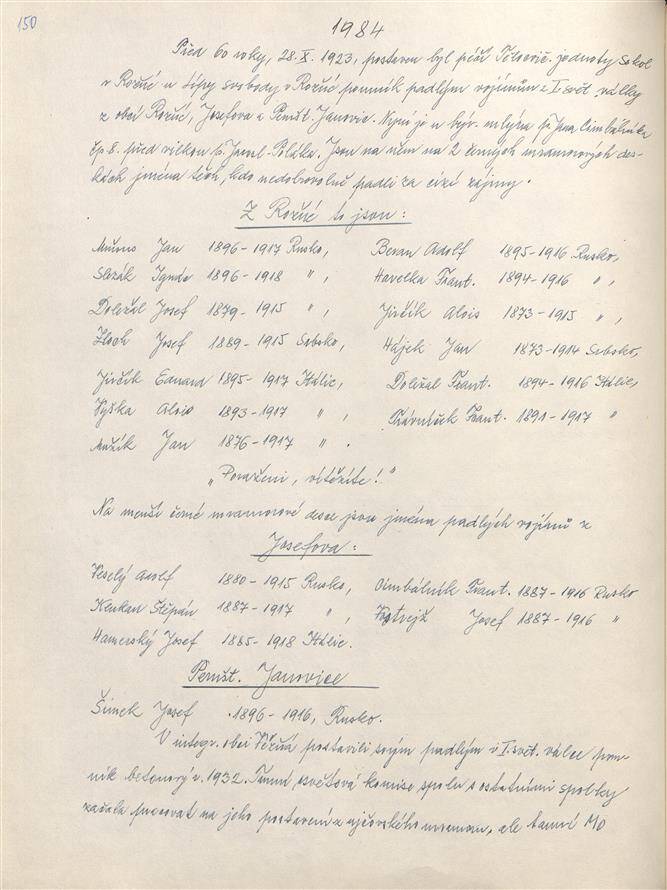 150
1984
Před 60 roky, 28.X. 1923, postaven byl péčí Tělocvič. jednoty Sokol
v Rožné a župy svobody v Rožné pomník padlým vojínům z I. svět. války
z obcí Rožné, Josefova a Pernšt. Janovic. Nyní je u býv. mlýna p. Jana Cimbálníka
čp 8. před vilkou p. Poláka. Jsou na něm na 2 černých mramorových des-
kách jména těch, kdo nedobrovolně padli za cizí zájmy.
Z Rožné to jsou:
Jan 1896-1917 Rusko, Beran Adolf 1895-1916 Rusko,
Slezák Ignác 1896-1918 " , Havelka Frant. 1894-1916 " ,
Doležal Josef 1879-1915 " , Jirčík Alois 1873-1915 " ,
Zloch Josef 1889-1915 Srbsko, Hájek Jan 1873-1914 Srbsko,
Jirčík Eduard 1895-1917 Itálie, Doležal Frant. 1894-1916 Itálie,
Vyška Alois 1893-1917 " , Frant. 1891-1917 "
Mužík Jan 1876-1917 " .
„Poraženi, vítězíte!"
Na menší černé mramorové desce jsou jména padlých vojínů z
Josefova:
Veselý Adolf 1880-1915 Rusko, Cimbálník Frant. 1887-1916 Rusko
Štěpán 1887-1917 " , Josef 1887-1916 "
Hamerský Josef 1885-1918 Itálie.
Pernšt. Janovice
Šimek Josef 1896-1916, Rusko.
V integr. obci Věžná postavili svým padlým v I. svět. válce pom-
ník betonový r. 1932. Tamní osvětová komise spolu s ostatními spolky
začala pracovat na jeho postavení z mramoru, ale tamní MO